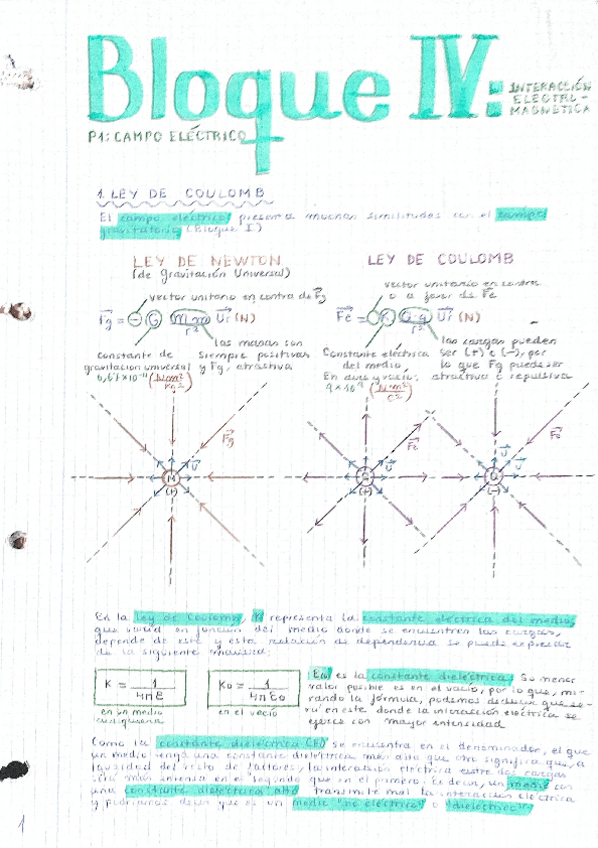 Bloque IV:
INTERACCIÓN
ELECTRO-
MAGNÉTICA
P1: CAMPO ELÉCTRICO
1. LEY DE COULOMB
El campo eléctrico presenta muchas similitudes con el campo
gravitatorio (Bloque I)
LEY DE NEWTON
(de Gravitación Universal)
vector unitario en contra de Fg
Fg = - G M·m/r² Ur (N)
constante de
gravitación universal
6,67×10⁻¹¹ (N·m²/kg²)
las masas son
siempre positivas
y Fg, atractiva
LEY DE COULOMB
vector unitario en contra
o a favor de Fe
Fe = K Q·q/r² Ur (N)
Constante eléctrica
del medio
En el vacío:
9×10⁹ (N·m²/C²)
las cargas pueden
ser (+) o (-), por
lo que Fg puede ser
atractiva o repulsiva
Fg
u
M
(+)
Fe
u
Q
(+)
Fe
u
u
Q
(-)
En la Ley de Coulomb, K representa la constante eléctrica del medio,
que varía en función del medio donde se encuentren las cargas,
depende de este y esta relación de dependencia se puede expresar
de la siguiente manera:
K = 1/4πε
en un medio
cualquiera
K₀ = 1/4πε₀
en el vacío
(ε₀) es la constante dieléctrica. Su menor
valor posible es en el vacío, por lo que, mi-
rando la fórmula, podemos deducir que se-
rá en este donde la interacción eléctrica se
ejerce con mayor intensidad
Como la constante dieléctrica (ε) se encuentra en el denominador, el que
un medio tenga una constante dieléctrica más alta que otro significa que, a
igualdad del resto de factores, la interacción eléctrica entre dos cargas
será más intensa en el segundo que en el primero. Es decir, un medio con
una constante dieléctrica alta transmite mal la interacción eléctrica
y podríamos decir que es un medio "no eléctrico" o "dieléctrico"
1